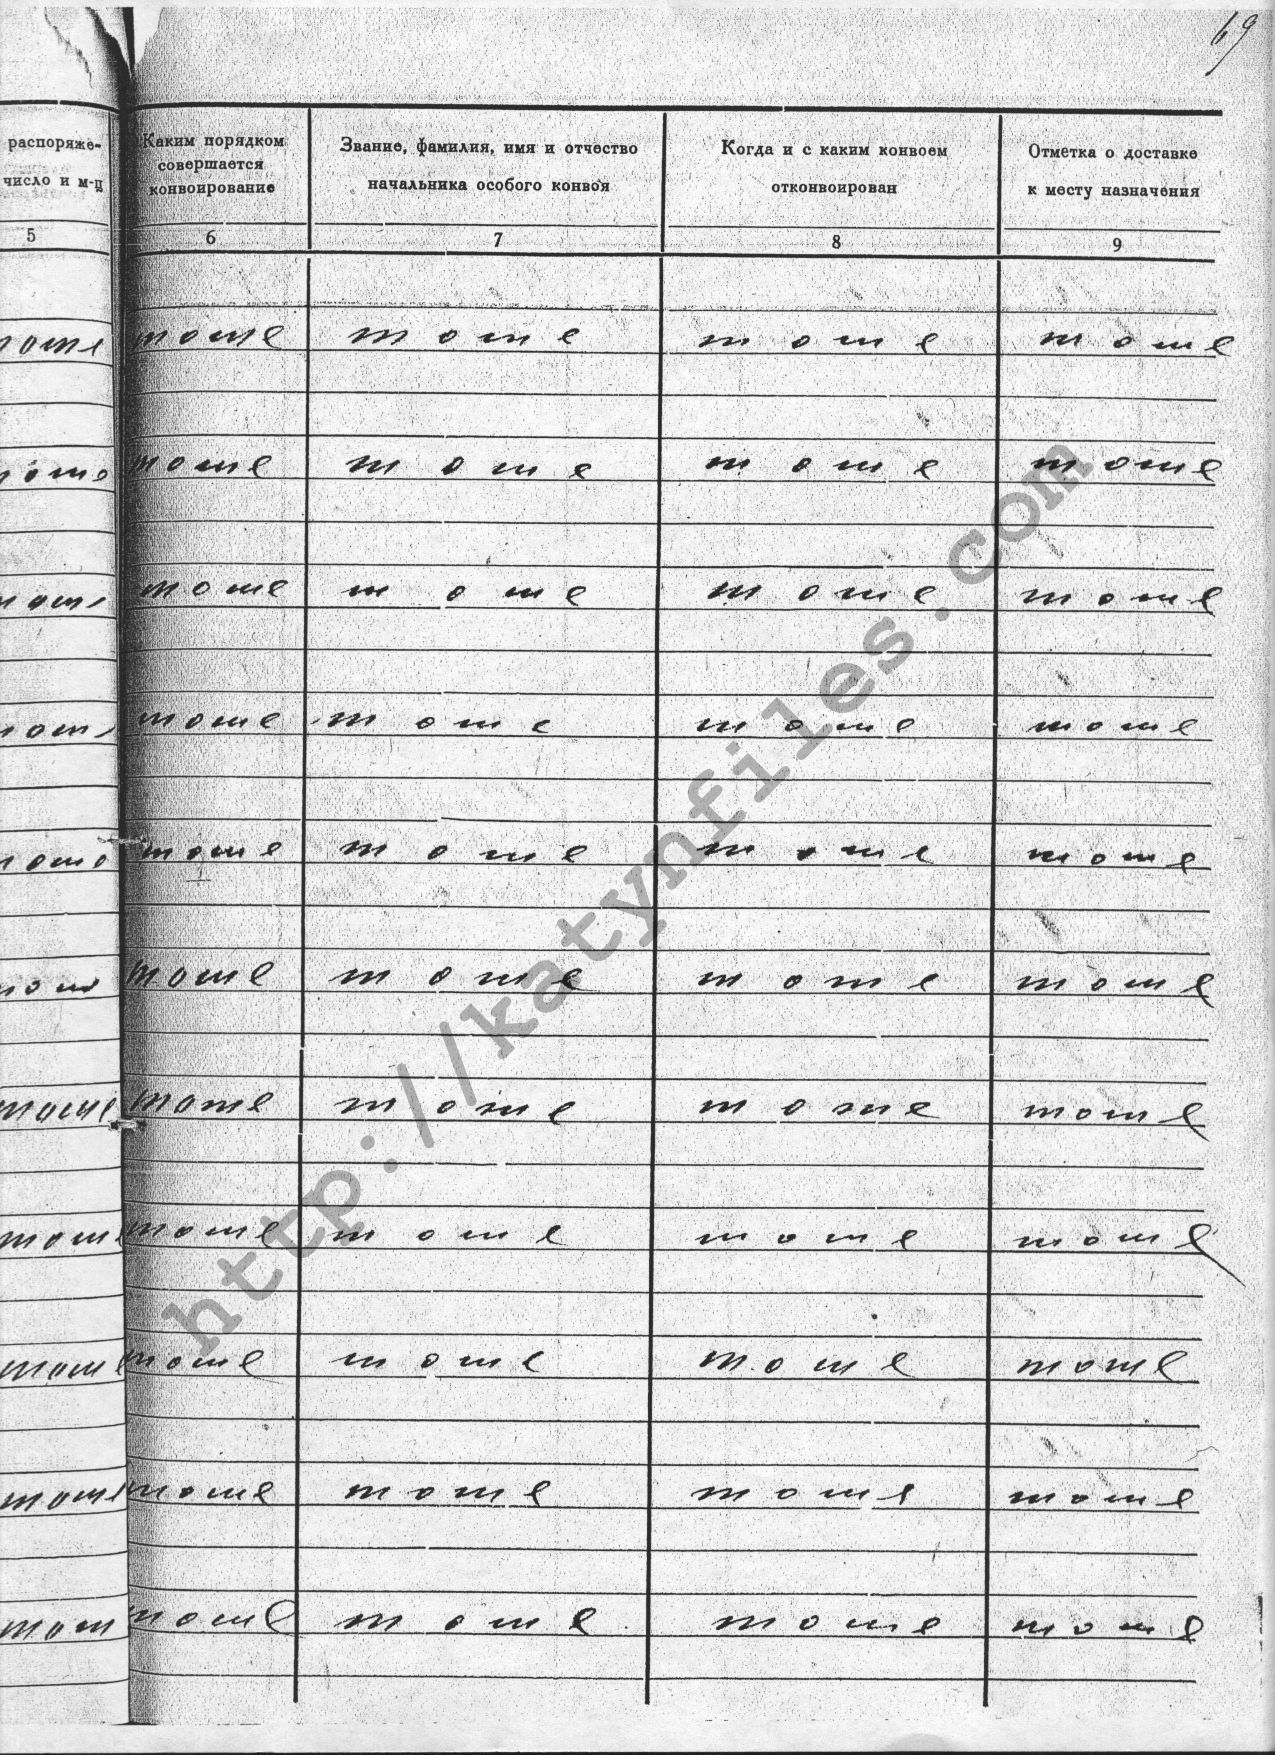 69
распоряже-
число и м-ц
Каким порядком
совершается
конвоирование
Звание, фамилия, имя и отчество
начальника особого конвоя
Когда и с каким конвоем
отконвоирован
Отметка о доставке
к месту назначения
5 6 7 8 9
тоже тоже тоже тоже тоже
тоже тоже тоже тоже
тоже тоже тоже тоже
тоже тоже тоже тоже
тоже тоже тоже тоже
тоже тоже тоже тоже
тоже тоже тоже тоже тоже
тоже тоже тоже тоже тоже
тоже тоже тоже тоже тоже
тоже тоже тоже тоже тоже
тоже тоже тоже тоже
http://katynfiles.com